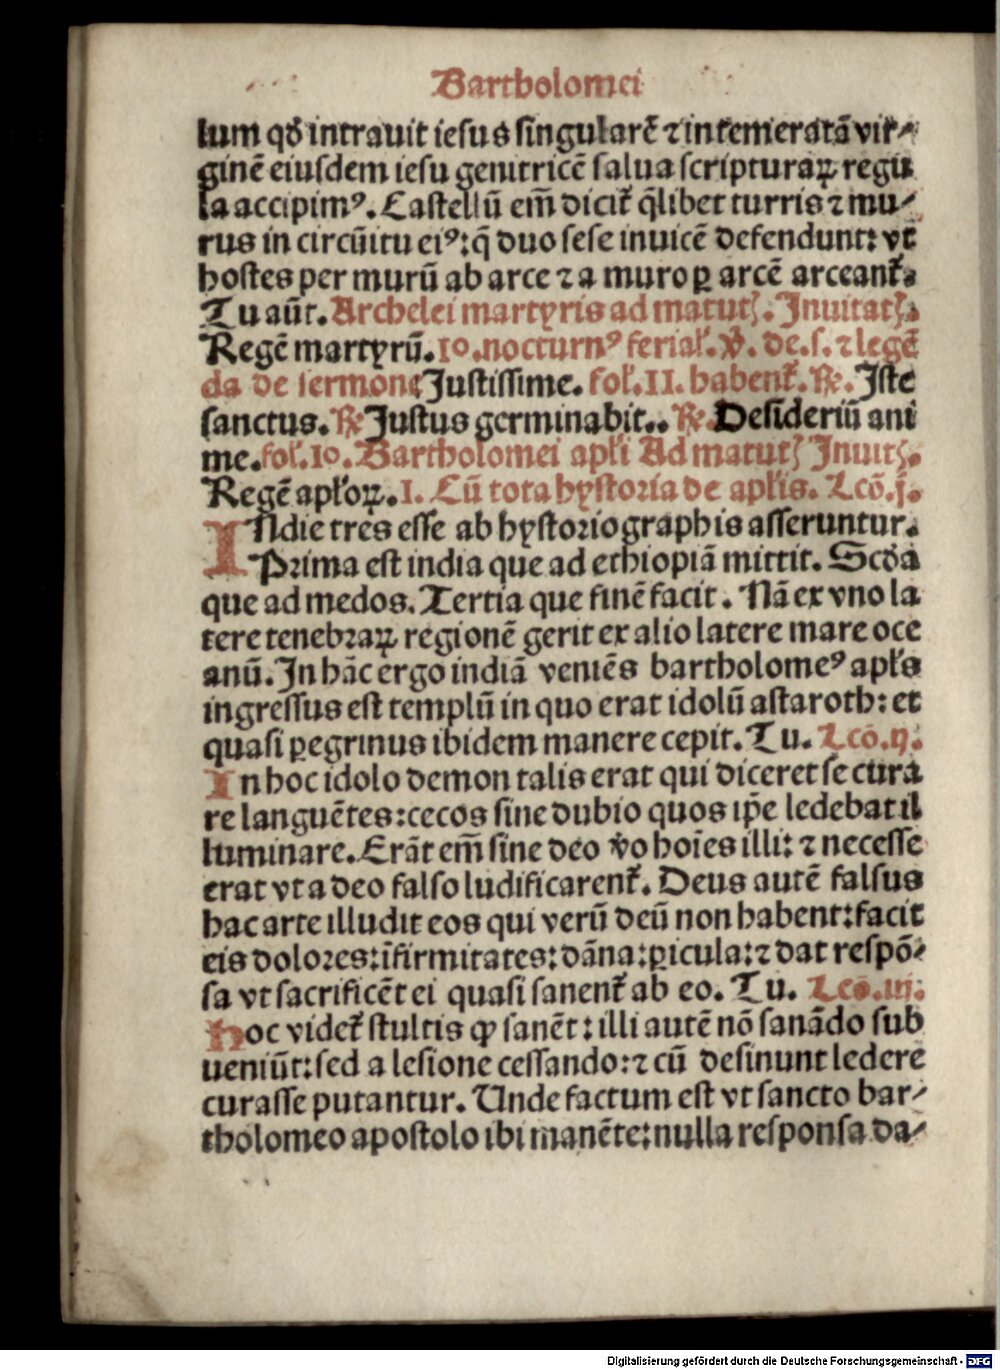 Bartholomei
lum qđ intrauit iesus singularē ⁊ intemeratā vir⸗
ginē eiusdem iesu genitricē salua scripturaꝝ regu
la accipimꝰ. Castellū em̄ dicit᷑ q̄libet turris ⁊ mu⸗
rus in circūitu eiꝰ: q̄ duo sese inuicē defendunt: vt
hostes per murū ab arce ⁊ a muro ꝑ arcē arceant᷑.
Tu aūt. Archelei martyris ad matutꝭ. Inuitatꝭ.
Regē martyrū. 10. nocturnꝰ ferial̓. ℣. de. s. ⁊ legē
da de sermone Iustissime. fol̓. 11. habent᷑. ℟. Iste
sanctus. ℟ Iustus germinabit.. ℟. Desideriū ani
me. fol̓. 10. Bartholomei apl̓i Ad matutꝭ Inuitꝭ.
Regē apl̓oꝝ. 1. Cū tota hystoria de apl̓is. Lcō. j.
INdie tres esse ab hystoriographis asseruntur.
Prima est india que ad ethiopiā mittit. Scđa
que ad medos. Tertia que finē facit. Nā ex vno la
tere tenebraꝝ regionē gerit ex alio latere mare oce
anū. In hāc ergo indiā veniēs bartholomeꝰ apl̓s
ingressus est templū in quo erat idolū astaroth: et
quasi ꝑegrinus ibidem manere cepit. Tu. Lcō. ij.
In hoc idolo demon talis erat qui diceret se cura
re languētes: cecos sine dubio quos ip̄e ledebat il
luminare. Erāt em̄ sine deo v̓o hoīes illi: ⁊ necesse
erat vt a deo falso ludificarent᷑. Deus autē falsus
hac arte illudit eos qui verū deū non habent: facit
eis dolores: īfirmitates: dāna: ꝑicula: ⁊ dat respō⸗
sa vt sacrificēt ei quasi sanent᷑ ab eo. Tu. Lcō. iij.
Hoc videt᷑ stultis ꝙ sanēt: illi autē nō sanādo sub
ueniūt: sed a lesione cessando: ⁊ cū desinunt ledere
curasse putantur. Unde factum est vt sancto bar⸗
tholomeo apostolo ibi manēte: nulla responsa da⸗
Digitalisierung gefördert durch die Deutsche Forschungsgemeinschaft - DFG